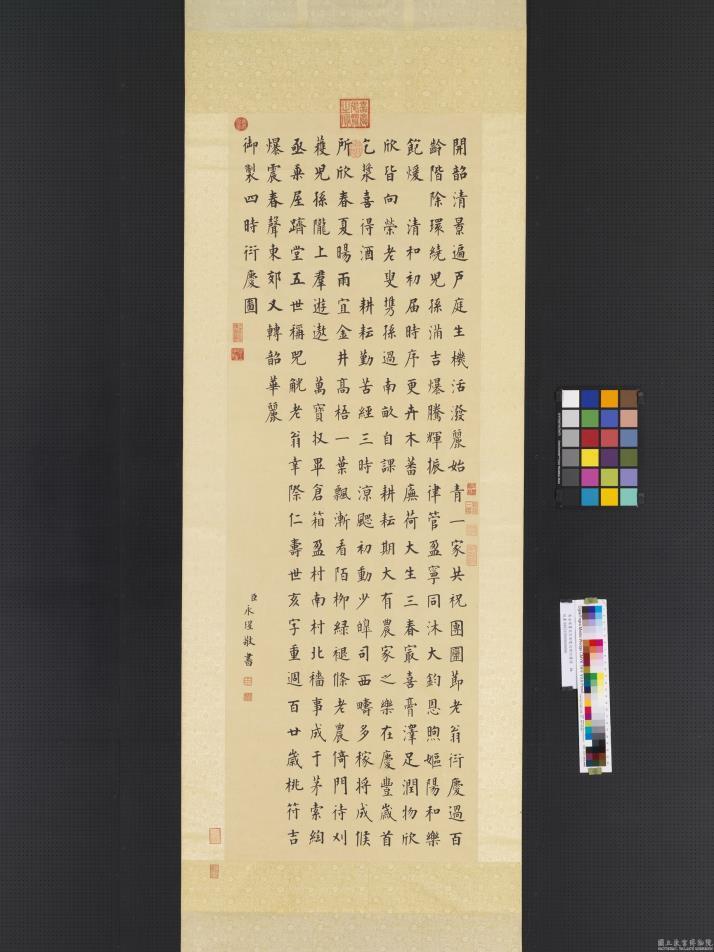 開韶清景遍戶庭生機活潑麗始青一家共祝團圞節老翁衎慶過百
齡階除環繞兒孫涓吉爆騰輝振律管盈寧同沐大鈞恩煦嫗陽和樂
範煖 清和初届時序更卉木蕃廡荷大生三春最喜膏澤足潤物欣
欣皆向榮老叟携孫過南畝自課耕耘期大有農家之樂在慶豐歲首
乞漿喜得酒 耕耘勤苦經三時涼颸初動少皞司西疇多稼將成候
所欣春夏暘雨宜金井高梧一葉飄漸看陌柳綠褪條老農倚門待刈
穫兒孫隴上羣遊遨 萬寶收畢倉箱盈村南村北穡事成于茅索綯
亟乘屋躋堂五世稱兕觥老翁幸際仁壽世亥字重週百廿歲桃符吉
爆震春聲東郊又轉韶華麗
御製四時衎慶圖
臣永瑆敬書
國立故宮博物院